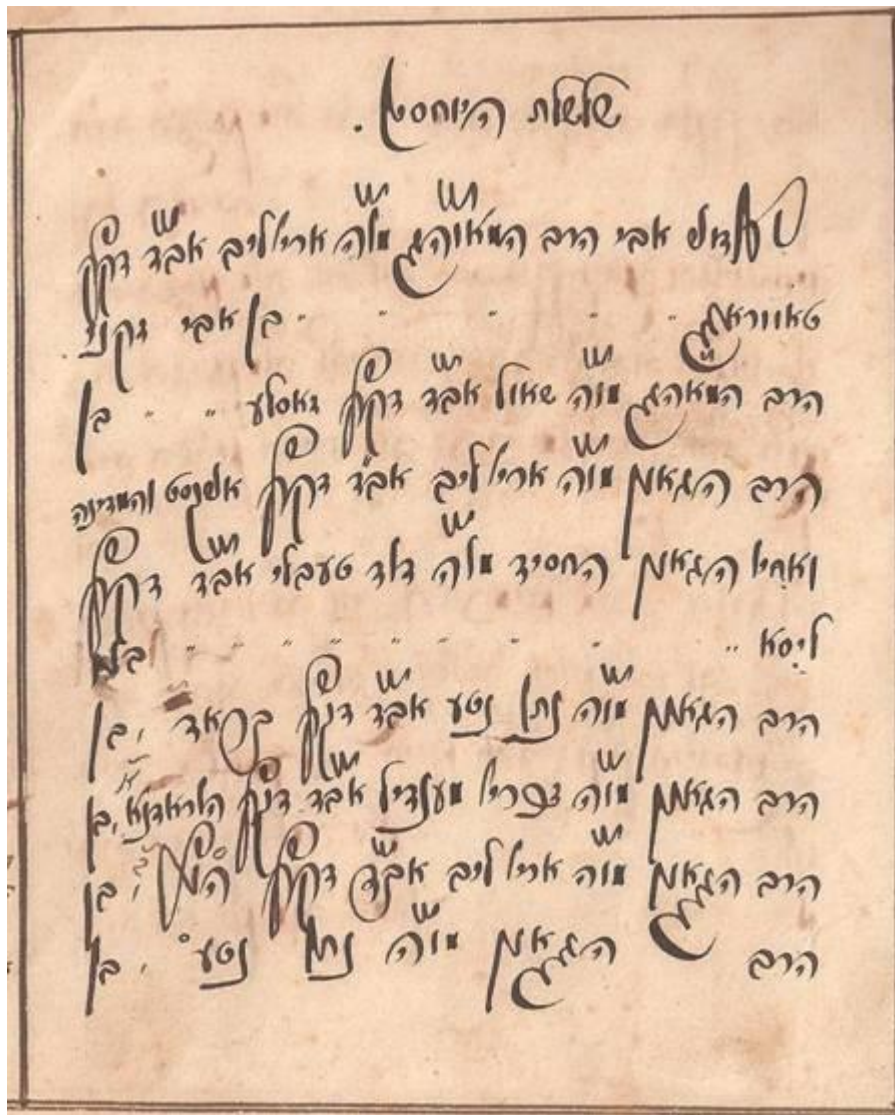 שלשלת היוחסין.
אבי הרב המאוה"ג מו"ה ארי' ליב אב"ד דק"ק
טאווראג " " " " " בן אבי זקני
הרב המאוה"ג מו"ה שאול אב"ד דק"ק זאסלע " " בן
הרב הגאון מו"ה ארי' ליב אב"ד דק"ק והמדינה
ואחיו הגאון החסיד מו"ה דוד טעבלי אב"ד דק"ק
ליסא " " " " " " " " " "
הרב הגאון מו"ה נתן נטע אב"ד דק"ק בראד , בן
הרב הגאון מו"ה עזריל מענדיל אב"ד דק"ק , בן
הרב הגאון מו"ה ארי' ליב אב"ד דק"ק , בן
הרב הגאון מו"ה נתן נטע , בן